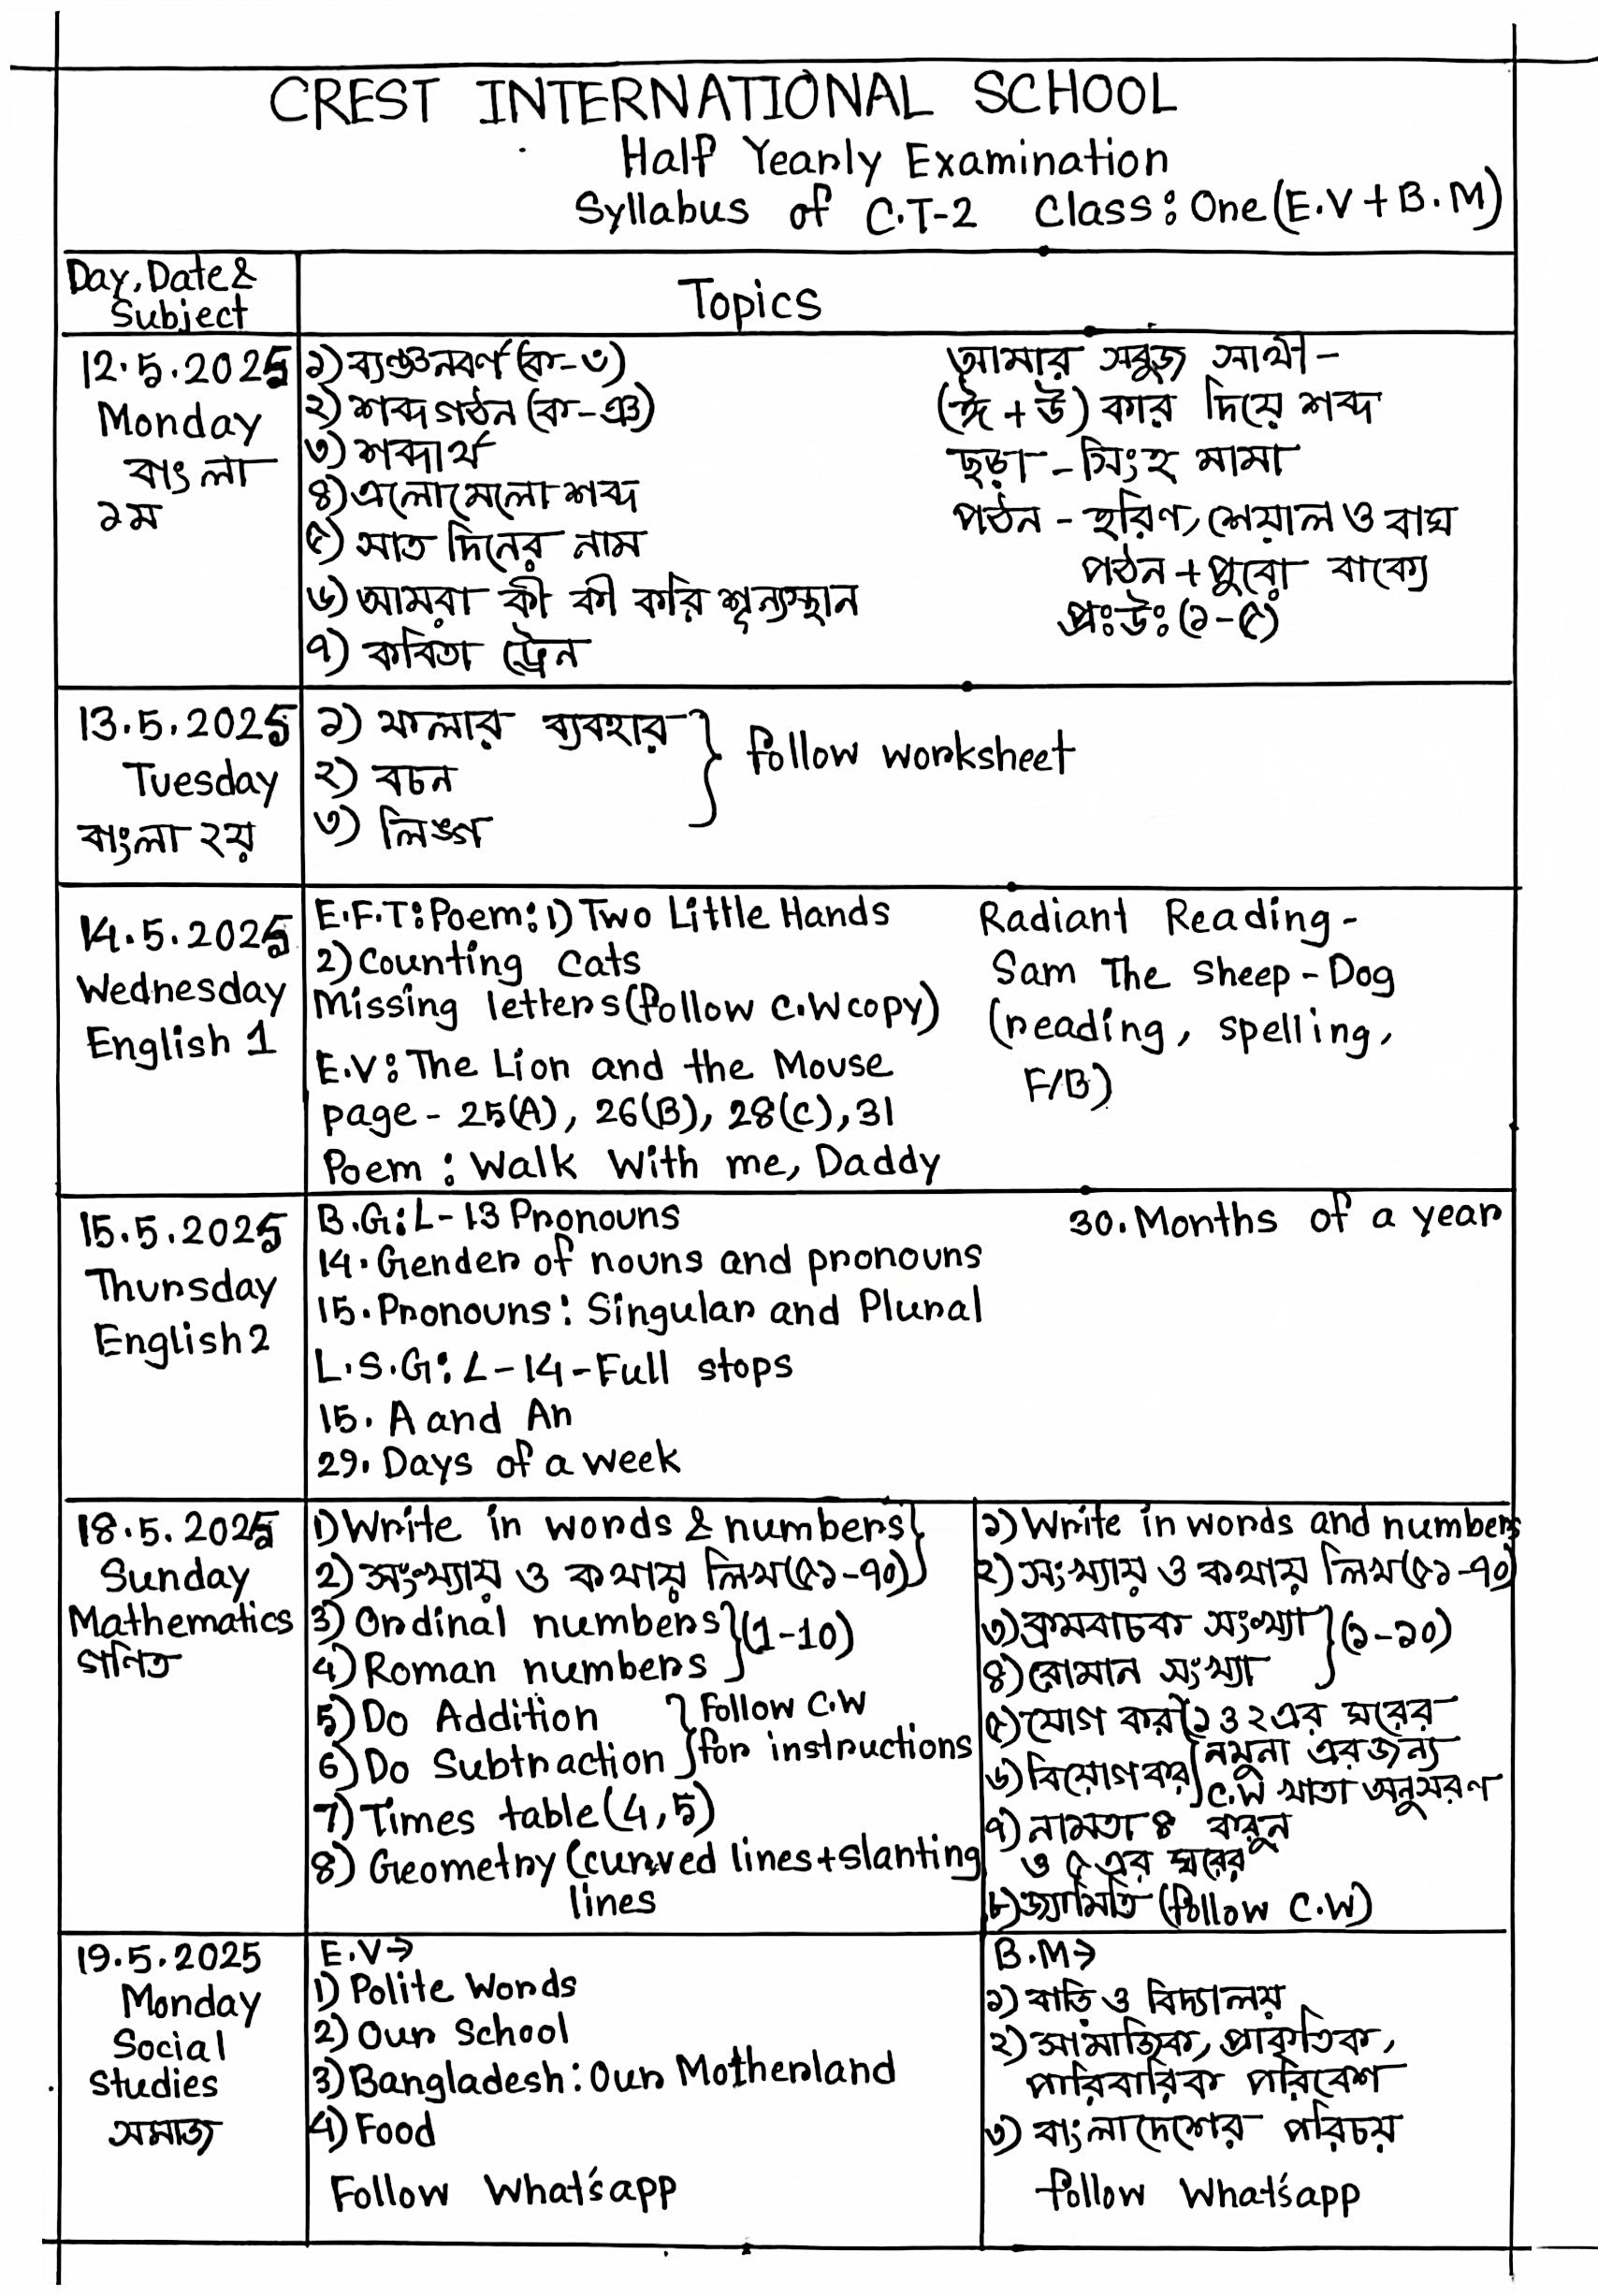 CREST INTERNATIONAL SCHOOL
Half Yearly Examination
Syllabus of C.T-2 Class: One (E.V + B.M)
Day, Date &
Subject
Topics
12.5.2025
Monday
বাংলা
১ম
১) ব্যঞ্জনবর্ণ (ক-ঙ)
২) শব্দ গঠন (ক-ঞ)
৩) শব্দার্থ
৪) এলোমেলো শব্দ
৫) সাত দিনের নাম
৬) আমরা কী কী করি শূন্যস্থান
৭) কবিতা ট্রেন
আমার সবুজ সাথী -
(ঈ + উ) কার দিয়ে শব্দ
ছড়া - সিংহ মামা
পঠন - হরিণ, শেয়াল ও বাঘ
পঠন + পুরো বাক্যে
প্রঃউঃ (১-৫)
13.5.2025
Tuesday
বাংলা ২য়
১) ফলার ব্যবহার
২) বচন
৩) লিঙ্গ
follow worksheet
14.5.2025
Wednesday
English 1
E.F.T: Poem: 1) Two Little Hands
2) Counting Cats
Missing letters (follow C.W copy)
E.V: The Lion and the Mouse
page - 25(A), 26(B), 28(C), 31
Poem : Walk With me, Daddy
Radiant Reading -
Sam The Sheep - Dog
(reading, spelling,
F/B)
15.5.2025
Thursday
English 2
B.G: L - 13 Pronouns
14. Gender of nouns and pronouns
15. Pronouns: Singular and Plural
L.S.G: L - 14 - Full stops
15. A and An
29. Days of a week
30. Months of a year
18.5.2025
Sunday
Mathematics
গণিত
1) Write in words & numbers
2) সংখ্যায় ও কথায় লিখ (৫১-৭০)
3) Ordinal numbers
4) Roman numbers
(1-10)
5) Do Addition
6) Do Subtraction
Follow C.W
for instructions
7) Times table (4,5)
8) Geometry (curved lines + slanting
lines
১) Write in words and numbers
২) সংখ্যায় ও কথায় লিখ (৫১-৭০)
৩) ক্রমবাচক সংখ্যা
৪) রোমান সংখ্যা
(১-১০)
৫) যোগ কর
৬) বিয়োগ কর
১ ও ২ এর ঘরের
নমুনা এর জন্য
C.W খাতা অনুসরণ
করুন
৭) নামতা ৪
ও ৫ এর ঘরের
৮) জ্যামিতি (follow C.W)
19.5.2025
Monday
Social
Studies
সমাজ
E.V→
1) Polite Words
2) Our School
3) Bangladesh: Our Motherland
4) Food
Follow What'sapp
B.M→
১) বাড়ি ও বিদ্যালয়
২) সামাজিক, প্রাকৃতিক,
পারিবারিক পরিবেশ
৩) বাংলাদেশের পরিচয়
follow What'sapp